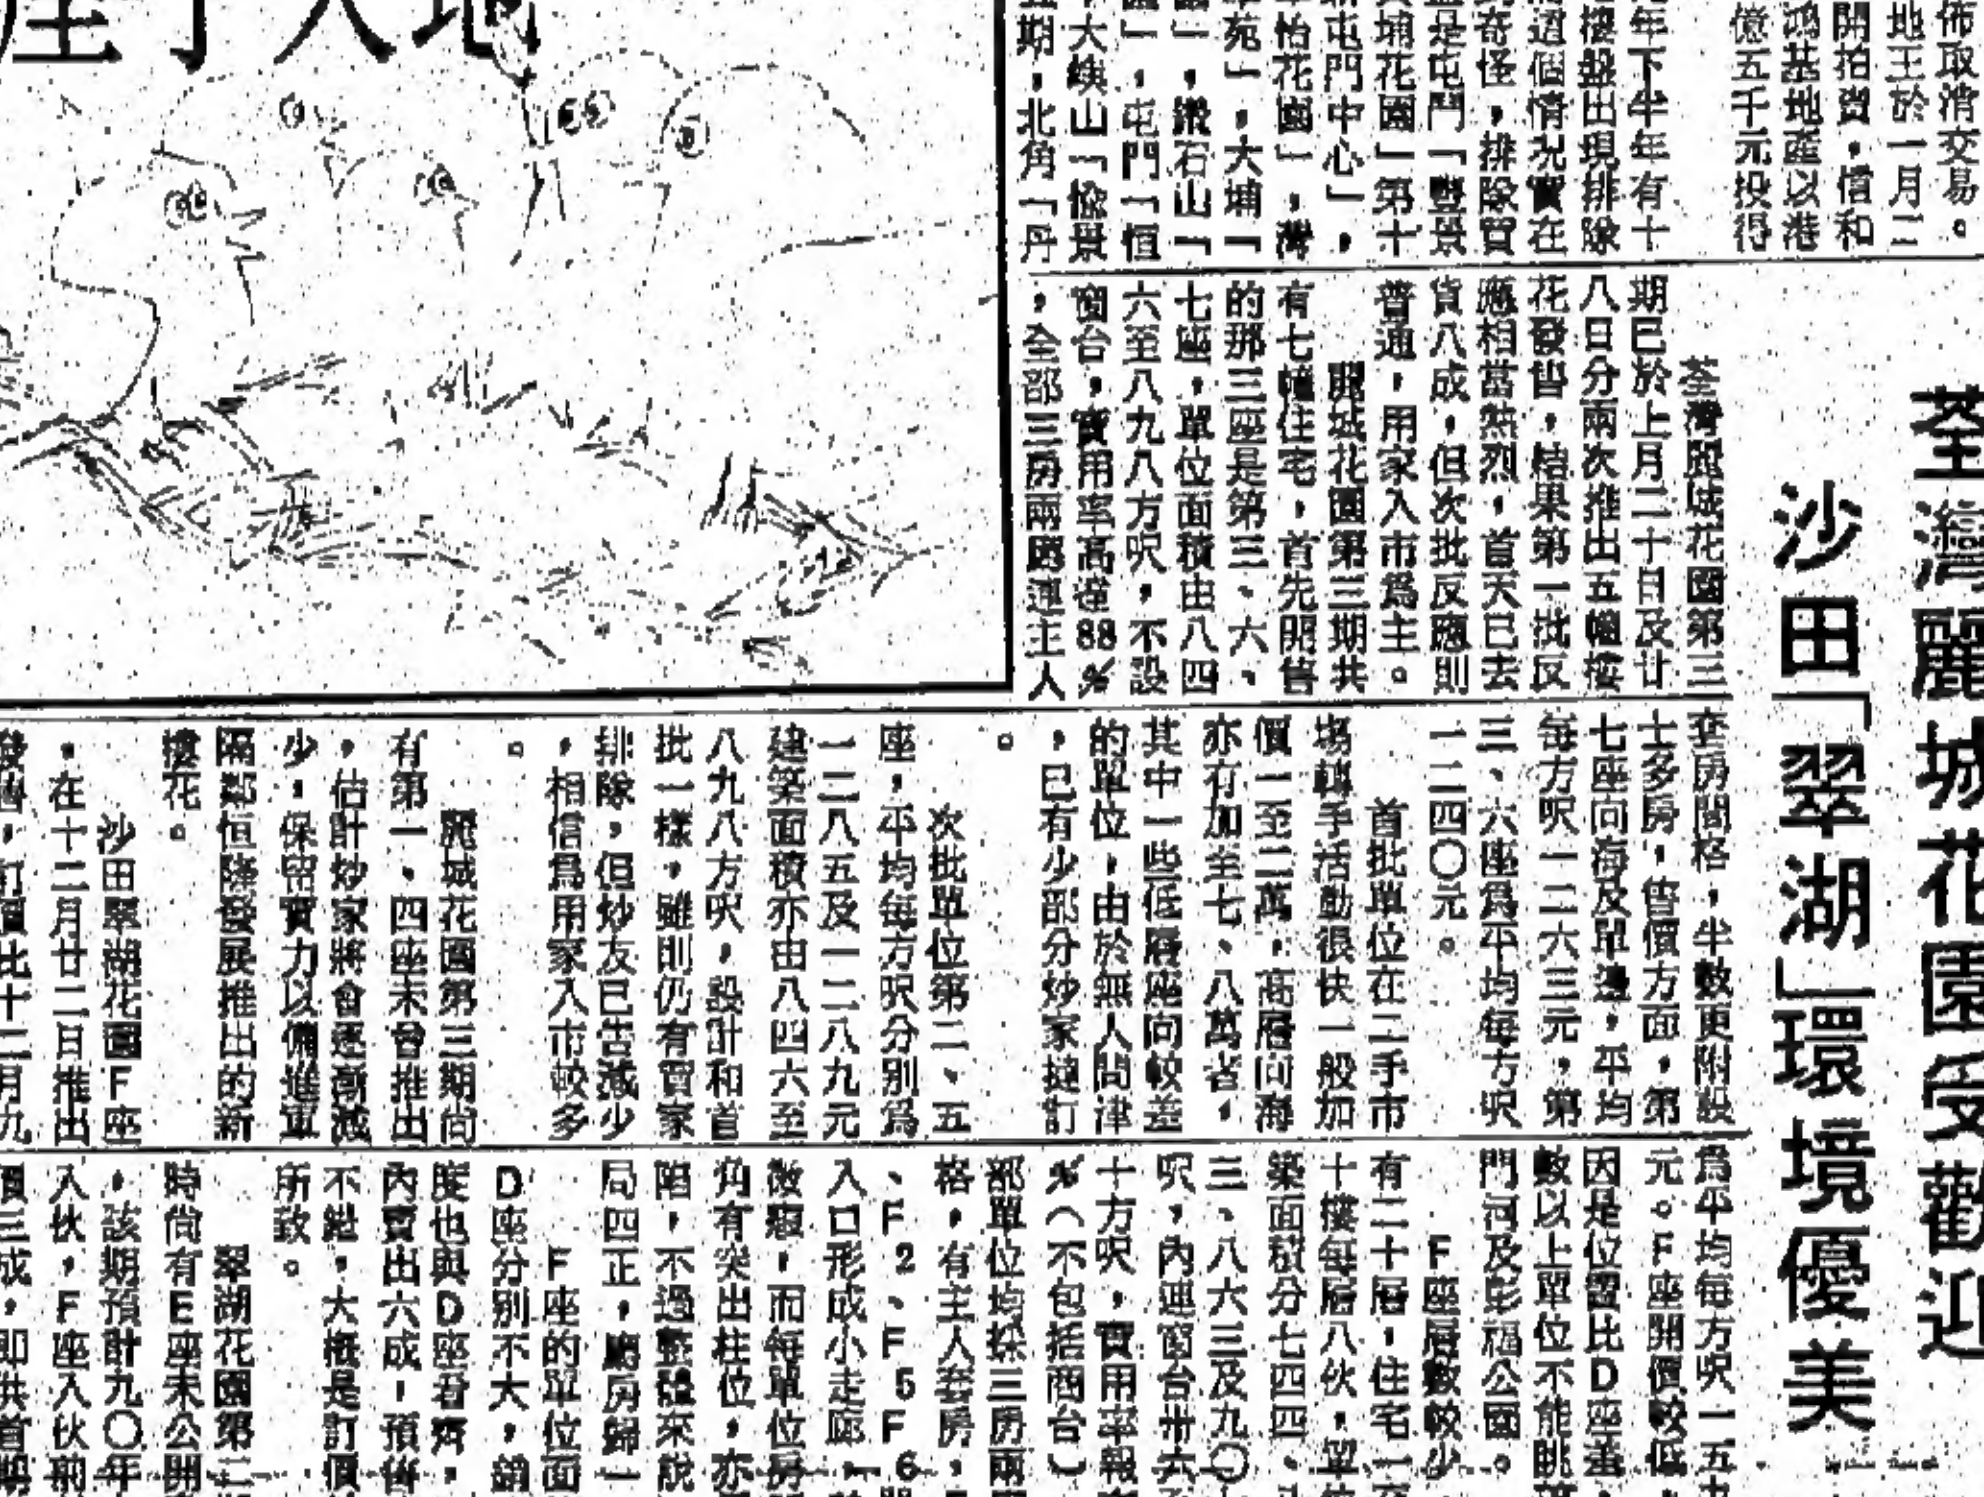 荃灣麗城花園受歡迎
沙田「翠湖」環境優美
佈取消交易。
地王於一月二
開拍賣，信和
鴻基地產以港
億五千元投得
年下半年有十
樓盤出現排隊
這個情況實在
奇怪，排隊買
是屯門「豐景
埔花園」第十
屯門中心」，
怡花園」，灣
苑」，大埔「
」，鑽石山「
」，屯門「恒
大嶼山「愉景
期，北角「丹
荃灣麗城花園第三
期已於上月二十日及廿
八日分兩次推出五幢樓
花發售，結果第一批反
應相當熱烈，首天已去
貨八成，但次批反應則
普通，用家入市為主。
麗城花園第三期共
有七幢住宅，首先開售
的那三座是第三、六、
七座，單位面積由八四
六至八九八方呎，不設
窗台，實用率高達88％
，全部三房兩廳連主人
套房間格，半數更附設
士多房，售價方面，第
七座向海及單邊，平均
每方呎一二六三元，第
三、六座為平均每方呎
一二四〇元。
首批單位在二手市
場轉手活動很快一般加
價一至二萬，高層向海
亦有加至七、八萬者，
其中一些低層座向較差
的單位，由於無人問津
，已有少部分炒家撻訂
。
次批單位第二、五
座，平均每方呎分別為
一二八五及一二八九元
建築面積亦由八四六至
八九八方呎，設計和首
批一樣，雖則仍有買家
排隊，但炒友已告減少
，相信為用家入市較多
。
麗城花園第三期尚
有第一、四座未曾推出
，估計炒家將會逐漸減
少，保留實力以備進軍
隔鄰恒隆發展推出的新
樓花。
沙田翠湖花園F座
，在十二月廿二日推出
發售，訂價比十二月九
為平均每方呎一五
元。F座開價較低
因是位置比D座差，
數以上單位不能眺
門河及彭福公園。
F座層數較少
有二十層，住宅
十樓每層八伙，單
築面積分七四四、
三、八六三及九〇
呎，內連窗台卅六
十方呎，實用率報
％（不包括商台）
部單位均採三房兩
格，有主人套房，
、F2、F5F6
入口形成小走廊，
微窺，而每單位房
角有突出柱位，亦
陷，不過整體來說
局四正，廳房歸一
F座的單位面
D座分別不大，銷
度也與D座看齊，
內賣出六成，預售
不錯，大概是訂價
所致。
翠湖花園第二
時尚有E座未公開
，該期預計九〇年
入伙，F座入伙前
價三成，即供首期